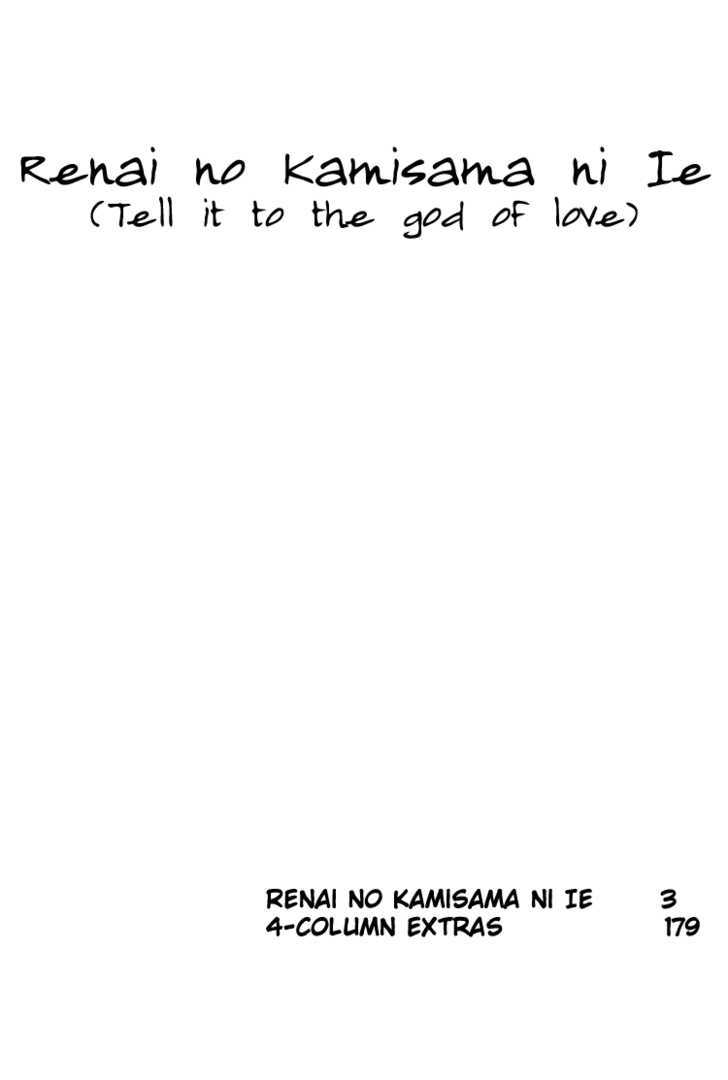 Renai no Kamisama ni Ie
(Tell it to the god of love)
RENAI NO KAMISAMA NI IE 3
4-COLUMN EXTRAS 179